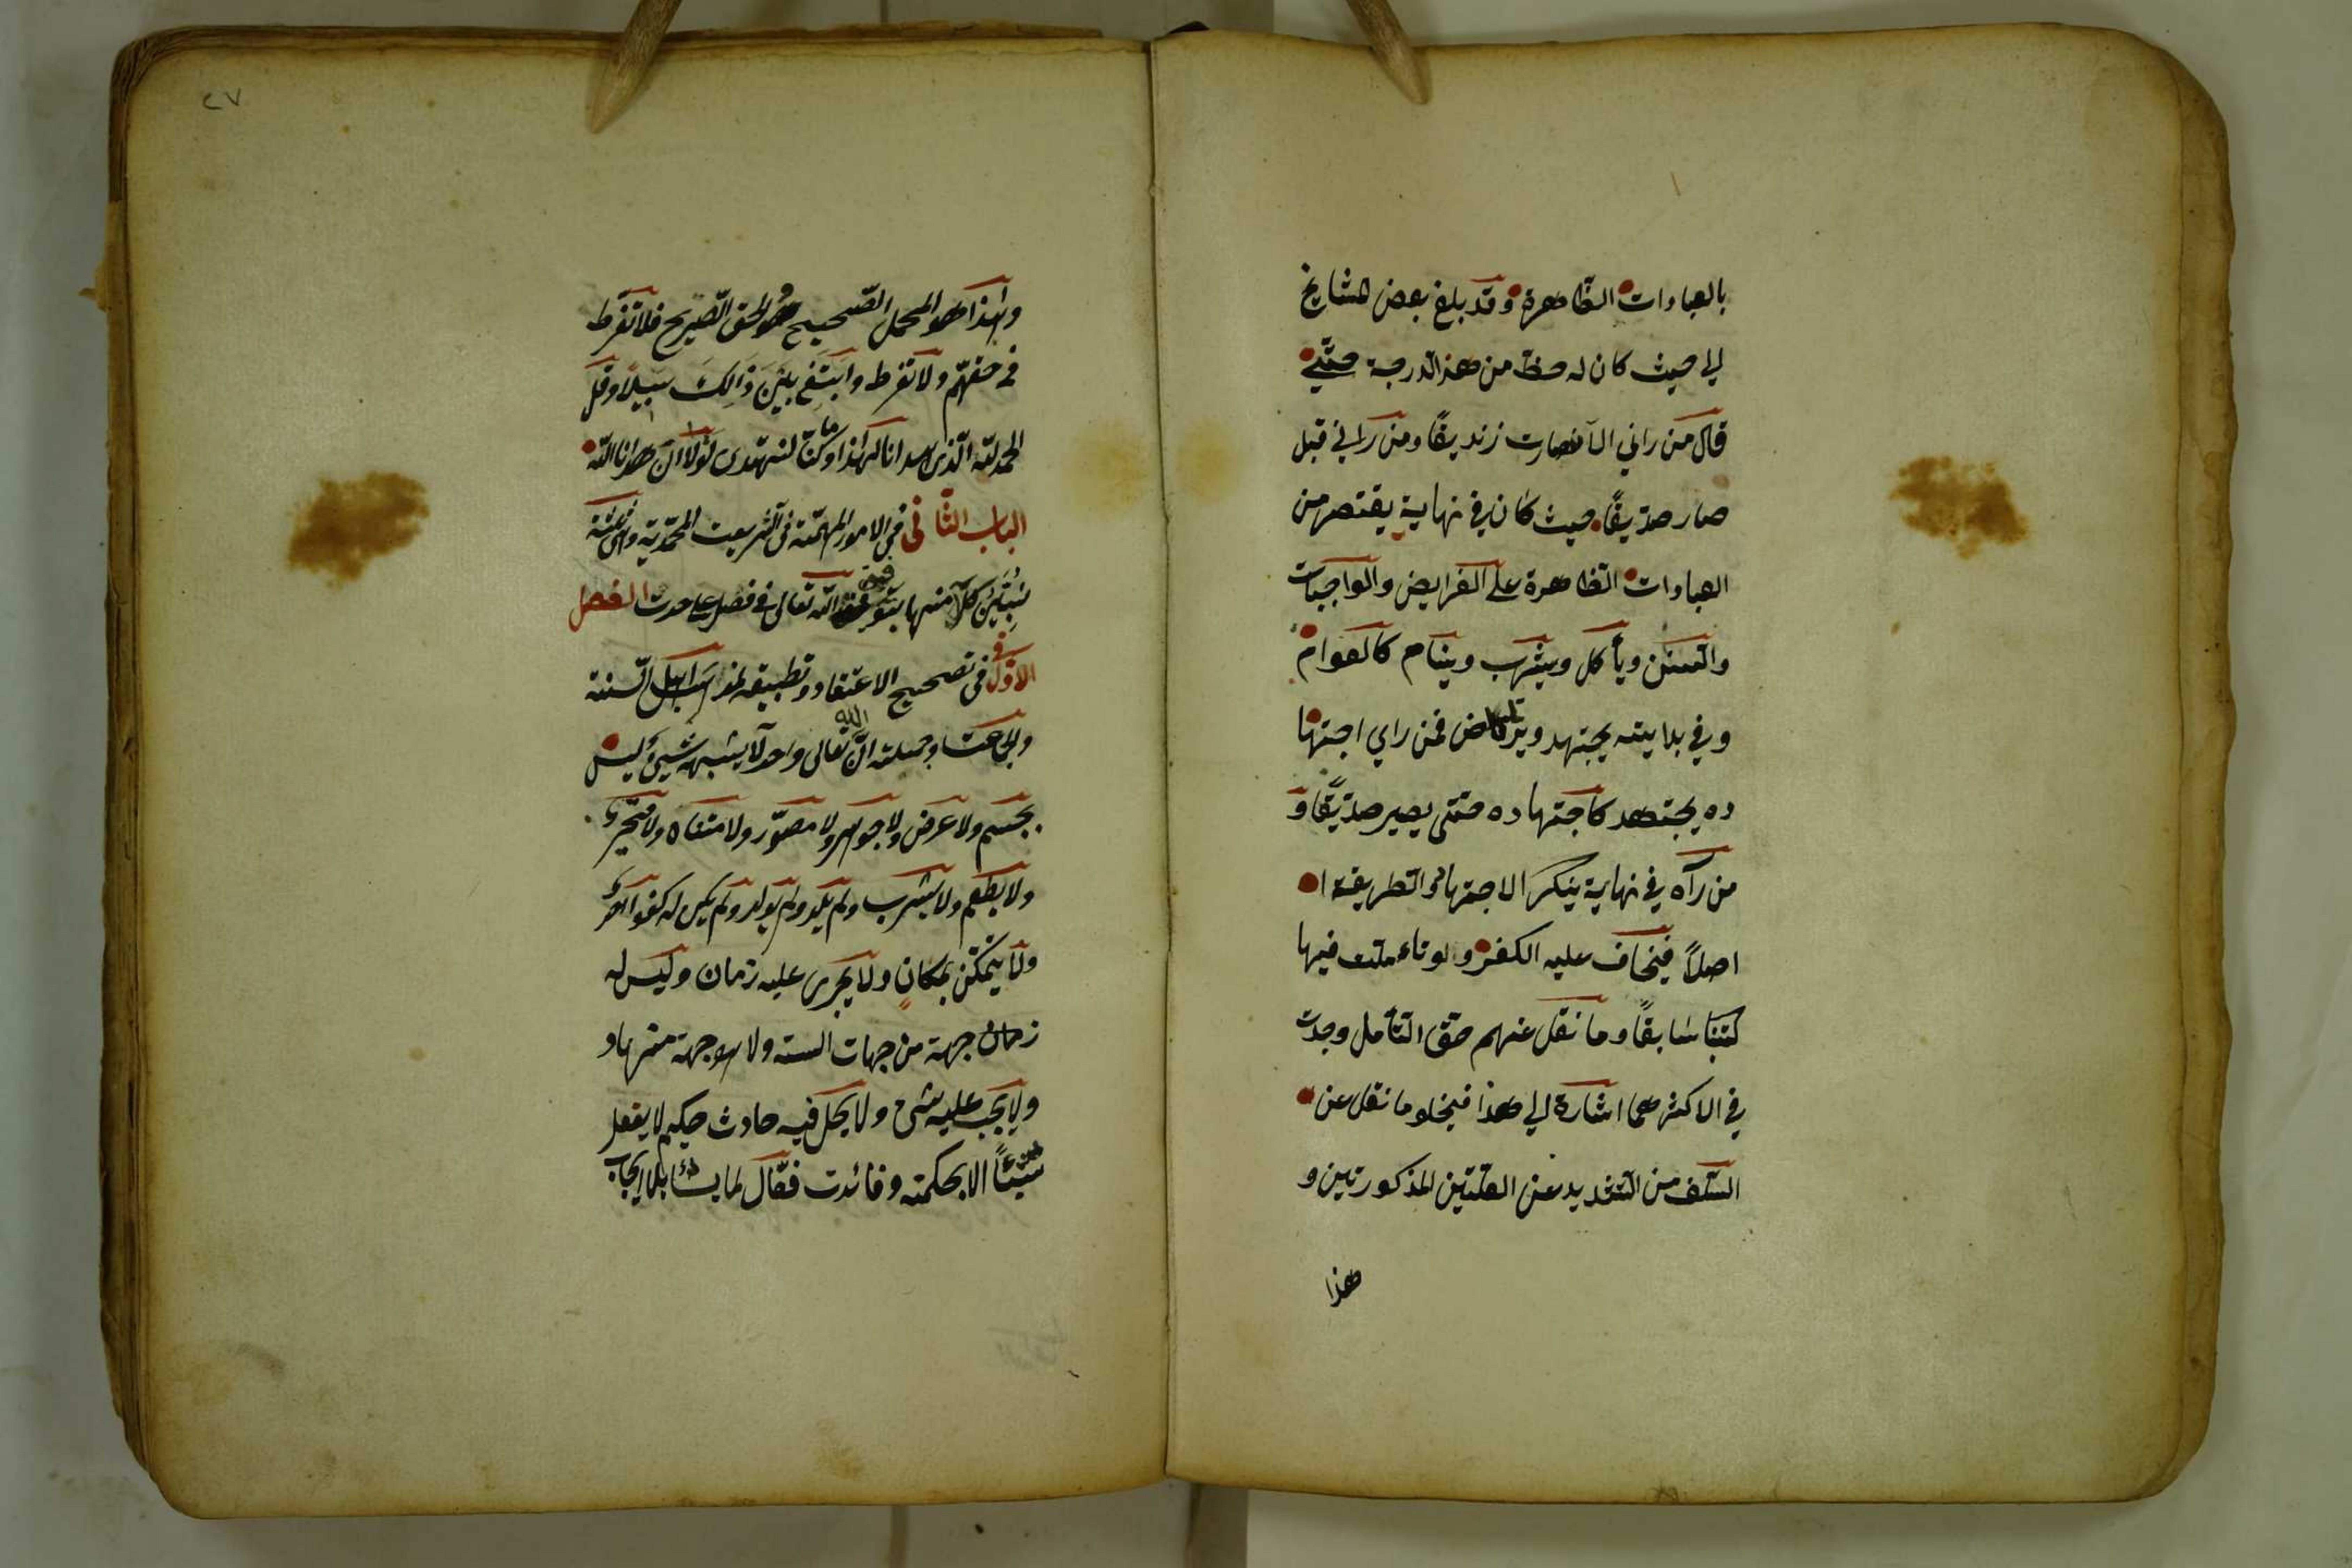 بالعبادات الظاهرة وقد بلغ بعض مشايخ
الي حيث كان له حظ من هذالدرجة حتّي
قال من راني الآن صارت زنديقًا ومن راني قبل
صار صدّيقًا حيث كان في نهاية يقتصر من
العبادات الظاهرة علي الفرايض والواجبات
والسنن ويأكل ويشرب وينام كالعوام
وفي بدايته يجتهد ويرتاض فمن راي اجتها
ده يجتهد كاجتهاده حتّى يصير صدّيقًا و
من رآه في نهاية ينكر الاجتهاد والطريقة ا
اصلًا فيخاف عليه الكفر ولو تاءملت فيها
كتبنا سابقًا وما نقل عنهم حق التأمل وجدت
في الاكثرهما اشارة الي هذا فيخلو ما نقل عن
السّلف من التشديد عن العلتين المذكورتين و
هذا
٢٧
وهذا هو المحمل الصّحيح وهوالحق الصّريح فلا تفرط
في حقهم ولا تفرط وابتغ بين ذالك سبيلًا وقل
الحمد لله الّذي هدانا لهذا وما كنّا لنهتدى لولا ان هدانا الله
الباب الثّاني في الامور المهمّة في الشريعت المحمّدية وهي ثلثة
نبيّن كلًا منها بتوفيق الله تعالى في فصل على حدت الفصل
الاوّل في تصحيح الاعتقاد وتطبيقه لمذاهب اهل السّنة
والجماعت وجملته انّ الله تعالى واحد لا يشبهه شيئ وليس
بجسم ولا عرض ولا جوهر ولا مصوّر ولا متناه ولا متحيز
ولا يطعم ولا يشرب ولم يلد ولم يولد ولم يكن له كفوا احد
ولا يتمكّن بمكان ولا يجرى عليه زمان وليس له
زمان جهة من جهات السته ولا هو جهة منها و
ولا يجب عليه شىء ولا يحل فيه حادث حكيم لا يفعل
شيئًا الا بحكمته وفائدت فعّال لما يشاء بلا ايجاب